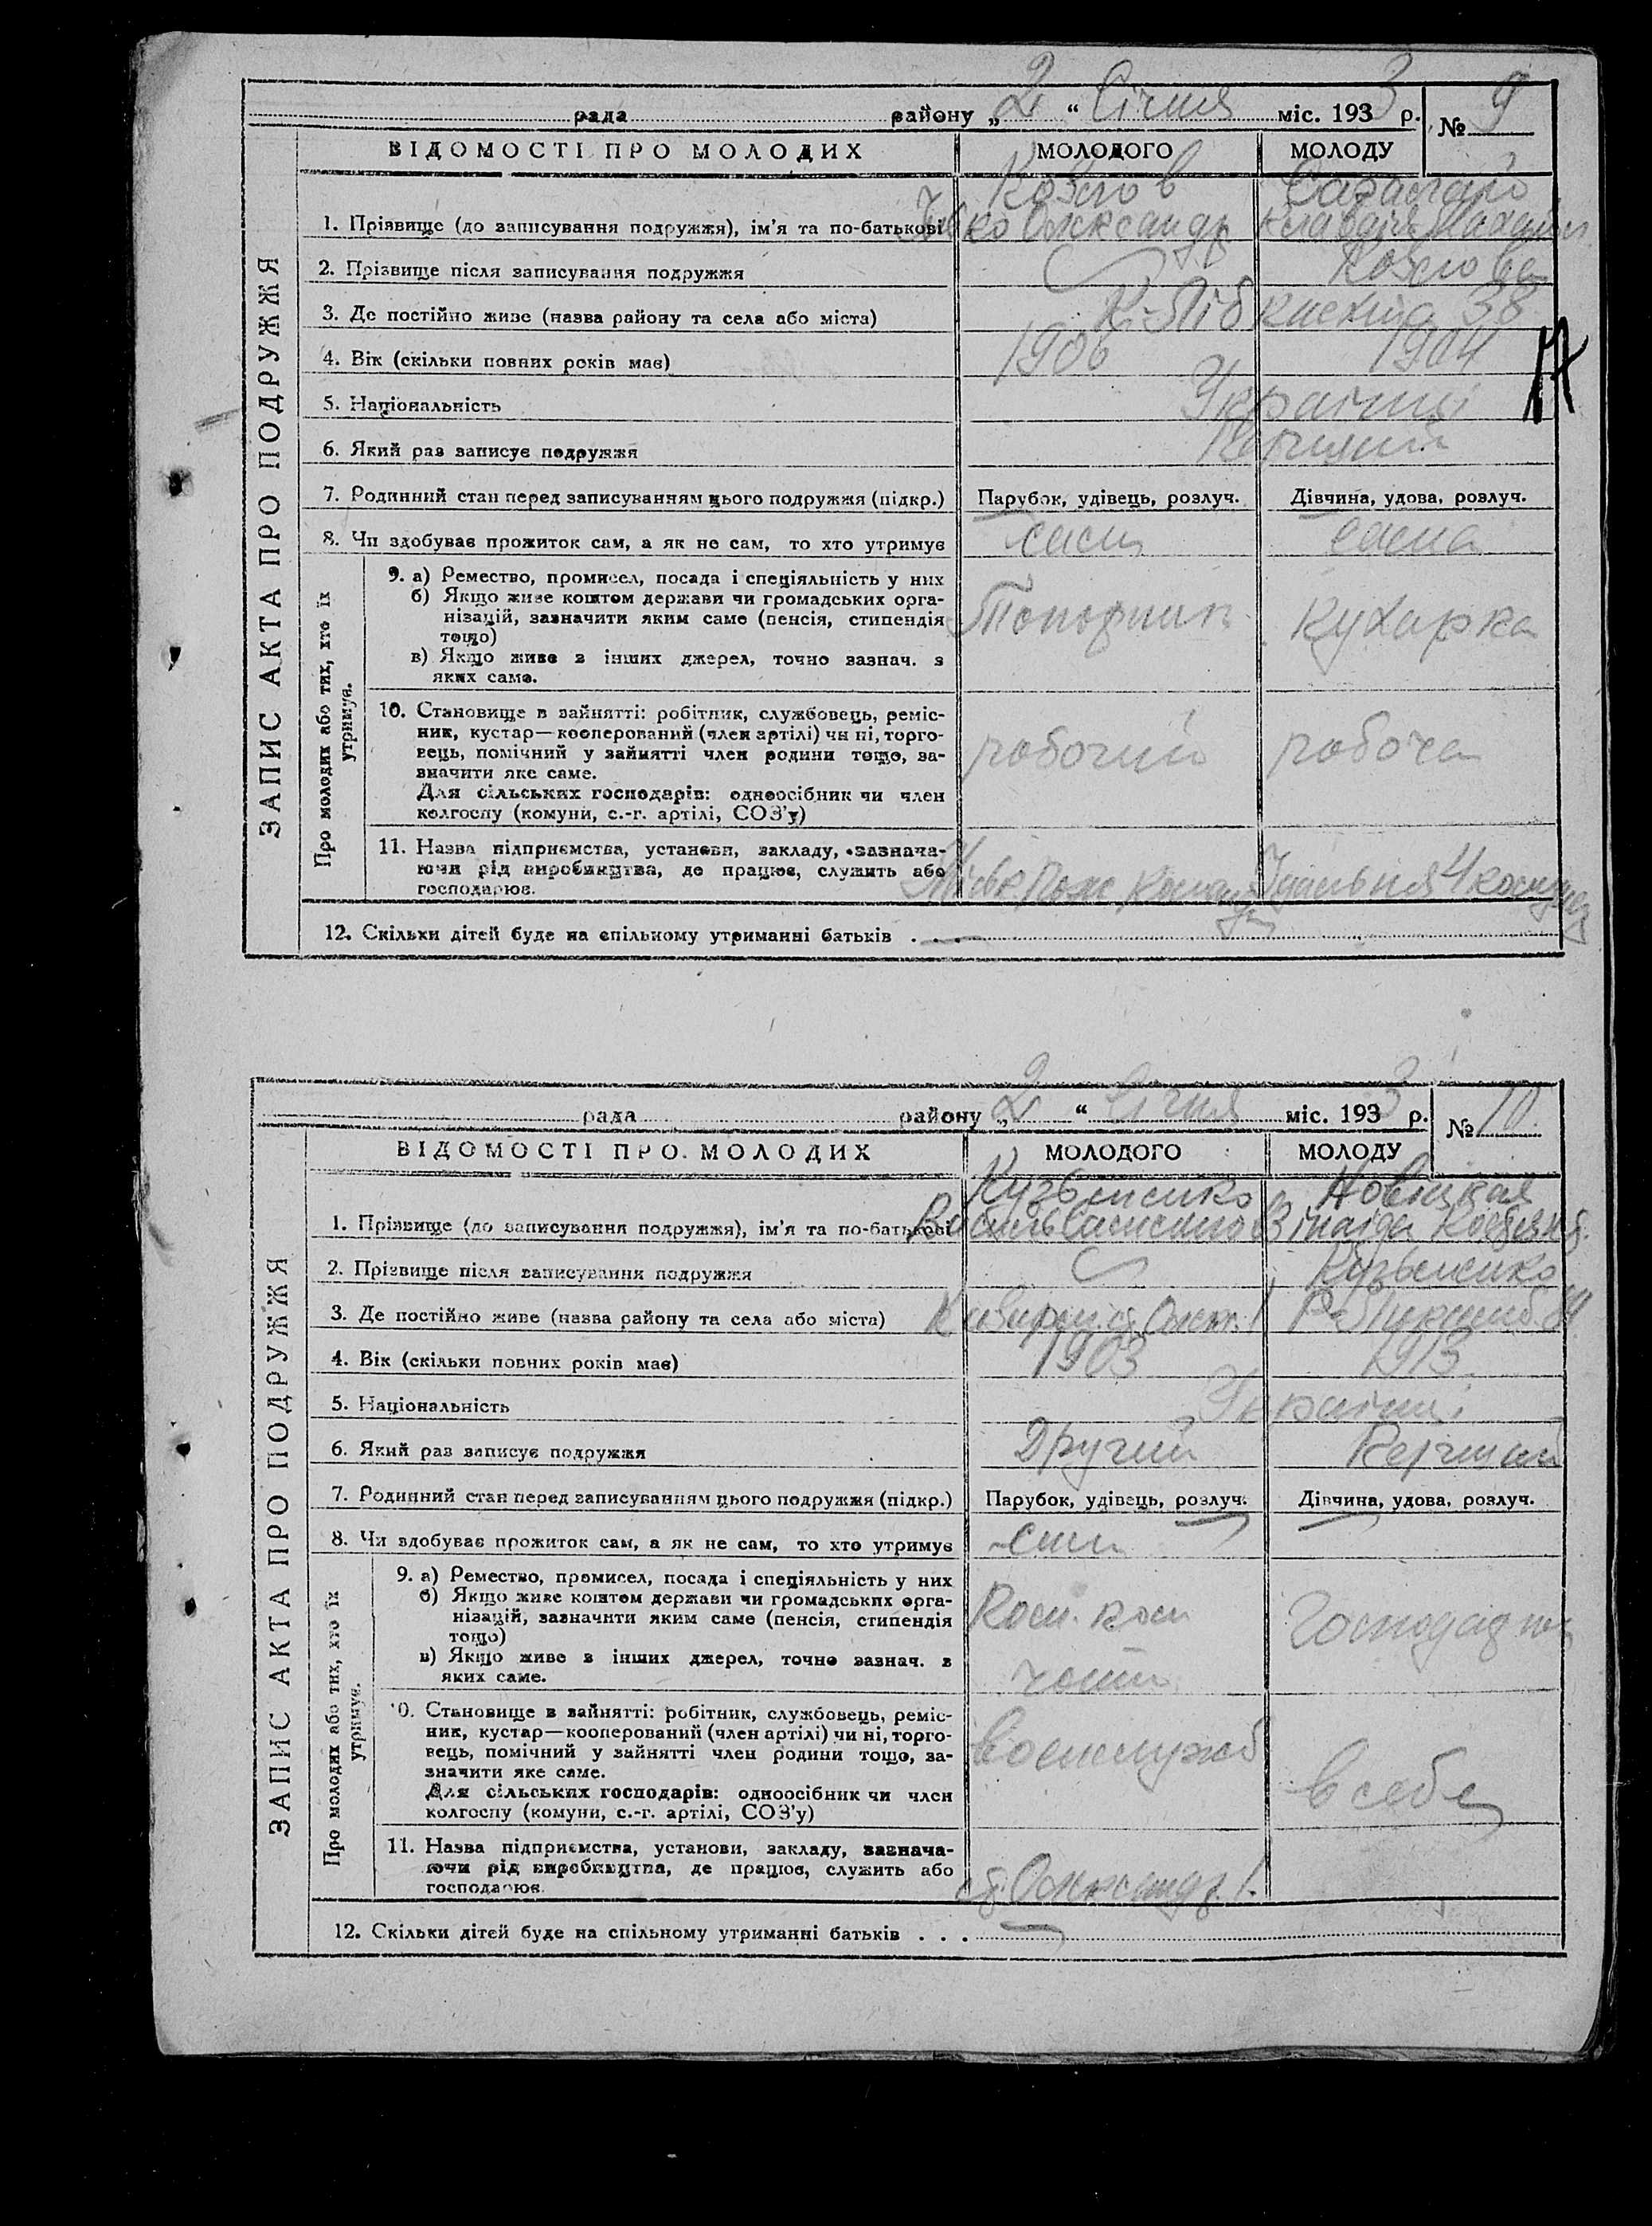 рада району „2“ Січня міс. 1933 р. № 9
ЗАПИС АКТА ПРО ПОДРУЖЖЯ
ВІДОМОСТІ ПРО МОЛОДИХ МОЛОДОГО МОЛОДУ
Козлов
1. Прізвище (до записування подружжя), ім'я та по-батькові Олександр Клавдія
2. Прізвище після записування подружжя Козлова
3. Де постійно живе (назва району та села або міста) К-Лібкнехта 38
4. Вік (скільки повних років має) 1906 1904
5. Національність Українці
6. Який раз записує подружжя Перший
7. Родинний стан перед записуванням цього подружжя (підкр.) Парубок, удівець, розлуч. Дівчина, удова, розлуч.
8. Чи здобуває прожиток сам, а як не сам, то хто утримує сам сама
Про молодих або тих, хто їх утримує.
9. а) Ремество, промисел, посада і спеціяльність у них
б) Якщо живе коштом держави чи громадських орга-
нізацій, зазначити яким саме (пенсія, стипендія Топорник Кухарка
тощо)
в) Якщо живе з інших джерел, точно зазнач. з
яких саме.
10. Становище в зайнятті: робітник, службовець, реміс-
ник, кустар—кооперований (член артілі) чи ні, торго-
вець, помічний у зайнятті член родини тощо, за- робочий робоча
значити яке саме.
Для сільських господарів: одноосібник чи член
колгоспу (комуни, с.-г. артілі, СОЗ'у)
11. Назва підприємства, установи, закладу, зазнача-
ючи рід виробництва, де працює, служить або Міськ Пож Команда Їдальня 4
господарює.
12. Скільки дітей буде на спільному утриманні батьків . . . —
рада району „2“ Січня міс. 1933 р. № 10
ЗАПИС АКТА ПРО ПОДРУЖЖЯ
ВІДОМОСТІ ПРО МОЛОДИХ МОЛОДОГО МОЛОДУ
Кузьменко Новицкая
1. Прізвище (до записування подружжя), ім'я та по-батькові Василь Зінаїда
2. Прізвище після записування подружжя Кузьменко
3. Де постійно живе (назва району та села або міста)
4. Вік (скільки повних років має) 1903 1913
5. Національність Українці
6. Який раз записує подружжя Другий Перший
7. Родинний стан перед записуванням цього подружжя (підкр.) Парубок, удівець, розлуч. Дівчина, удова, розлуч.
8. Чи здобуває прожиток сам, а як не сам, то хто утримує сам
Про молодих або тих, хто їх утримує.
9. а) Ремество, промисел, посада і спеціяльність у них
б) Якщо живе коштом держави чи громадських орга-
нізацій, зазначити яким саме (пенсія, стипендія
тощо)
в) Якщо живе з інших джерел, точно зазнач. з
яких саме.
10. Становище в зайнятті: робітник, службовець, реміс-
ник, кустар—кооперований (член артілі) чи ні, торго-
вець, помічний у зайнятті член родини тощо, за- военслужб
значити яке саме.
Для сільських господарів: одноосібник чи член в себе
колгоспу (комуни, с.-г. артілі, СОЗ'у)
11. Назва підприємства, установи, закладу, зазнача-
ючи рід виробництва, де працює, служить або
господарює.
12. Скільки дітей буде на спільному утриманні батьків . . . —